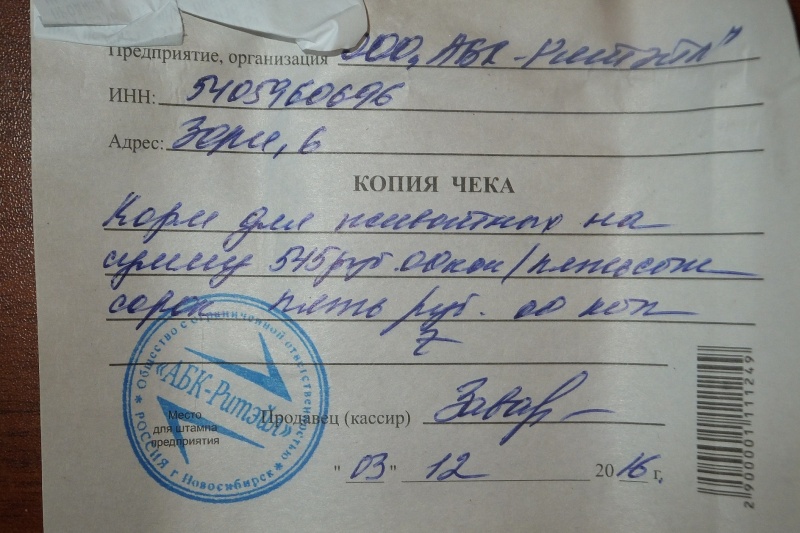 Предприятие, организация ООО „АБК-Ритэйл"
ИНН: 5405960696
Адрес: Зори, 6
КОПИЯ ЧЕКА
Корм для животных на
сумму 545 руб. 00 коп /пятьсот
сорок пять руб. 00 коп
Общество с ограниченной ответственностью
«АБК-Ритэйл»
* РОССИЯ г Новосибирск *
Место
для штампа
предприятия
Продавец (кассир)
"03" 12 2016 г,
2 900001 111249